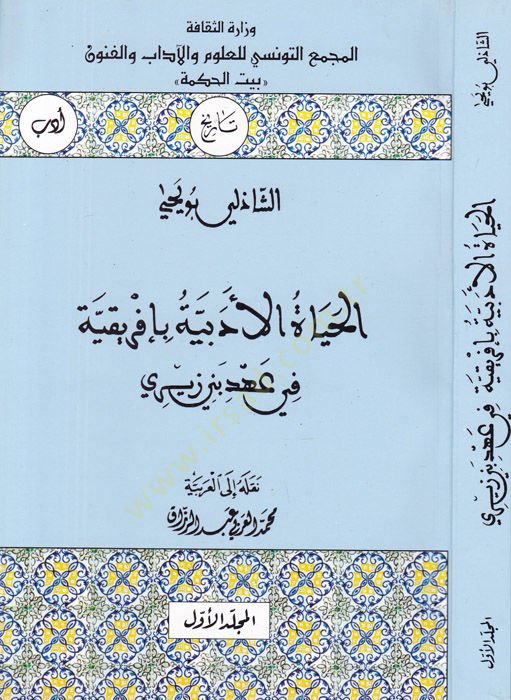 وزارة الثقافة
المجمع التونسي للعلوم والآداب والفنون
«بيت الحكمة»
تاريخ
أدب
الشاذلي بويحيى
الحَيَاةُ الأَدَبيَّةُ بِإفْرِيقِيَّة
فِي عَهْدِ بَنِي زِيرِي
نقله إلى العربية
محمد العربي عبد الرزاق
المجلد الأوّل
الشاذلي بويحيى
الحَيَاةُ الأَدَبيَّةُ بِإفْرِيقِيَّة فِي عَهْدِ بَنِي زِيرِي
المجلد الأوّل